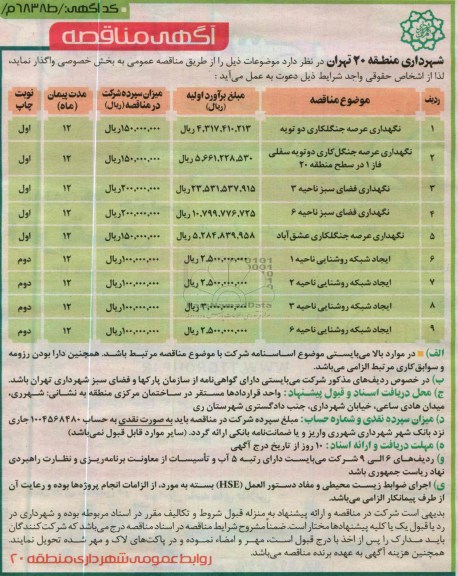 کد آگهی: /ط۶۸۳۸م/
آگهی مناقصه
شهرداری منطقه ۲۰ تهران در نظر دارد موضوعات ذیل را از طریق مناقصه عمومی به بخش خصوصی واگذار نماید،
لذا از اشخاص حقوقی واجد شرایط ذیل دعوت به عمل می‌آید:
ردیف موضوع مناقصه مبلغ برآورد اولیه (ریال) میزان سپرده شرکت در مناقصه (ریال) مدت پیمان (ماه) نوبت چاپ
۱ نگهداری عرصه جنگلکاری دو تویه ۴,۳۱۷,۴۱۰,۲۱۳ ریال ۱۵۰,۰۰۰,۰۰۰ریال ۱۲ اول
۲ نگهداری عرصه جنگل‌کاری دوتویه سفلی فاز ۱ در سطح منطقه ۲۰ ۵,۶۶۱,۲۲۸,۵۳۰ ریال ۱۵۰,۰۰۰,۰۰۰ریال ۱۲ اول
۳ نگهداری فضای سبز ناحیه ۳ ۲۳,۵۳۱,۵۳۷,۹۱۵ریال ۲۰۰,۰۰۰,۰۰۰ریال ۱۲ اول
۴ نگهداری فضای سبز ناحیه ۶ ۱۰,۷۹۹,۷۷۶,۷۲۵ ریال ۲۰۰,۰۰۰,۰۰۰ریال ۱۲ اول
۵ نگهداری عرصه جنگلکاری عشق‌آباد ۵,۲۸۴,۸۳۹,۹۵۸ ریال ۱۵۰,۰۰۰,۰۰۰ریال ۱۲ اول
۶ ایجاد شبکه روشنایی ناحیه ۱ ۲,۵۰۰,۰۰۰,۰۰۰ ریال ۱۰۰,۰۰۰,۰۰۰ریال ۱۲ دوم
۷ ایجاد شبکه روشنایی ناحیه ۲ ۲,۵۰۰,۰۰۰,۰۰۰ ریال ۱۰۰,۰۰۰,۰۰۰ریال ۱۲ دوم
۸ ایجاد شبکه روشنایی ناحیه ۳ ریال ۱۰۰,۰۰۰,۰۰۰ریال ۱۲ دوم
۹ ایجاد شبکه روشنایی ناحیه ۶ ۲,۵۰۰,۰۰۰,۰۰۰ ریال ۱۰۰,۰۰۰,۰۰۰ریال ۱۲ دوم
الف) در موارد بالا می‌بایستی موضوع اساسنامه شرکت با موضوع مناقصه مرتبط باشد. همچنین دارا بودن رزومه
و سوابق‌کاری مرتبط الزامی می‌باشد.
ب) در خصوص ردیف‌های مذکور شرکت می‌بایستی دارای گواهی‌نامه از سازمان پارکها و فضای سبز شهرداری تهران باشد.
ج) محل دریافت اسناد و قبول پیشنهاد: واحد قراردادها مستقر در ساختمان مرکزی منطقه به نشانی: شهرری،
میدان هادی ساعی، خیابان شهرداری، جنب دادگستری شهرستان ری
د) میزان سپرده نقدی و شماره حساب: مبلغ سپرده شرکت در مناقصه باید به صورت نقدی به حساب ۱۰۰۴۵۶۸۴۸۰ جاری
نزد بانک شهر شهرداری شهرری واریز و یا ضمانت‌نامه بانکی ارائه گردد. (سایر موارد قابل قبول نمی‌باشد)
ه) مهلت دریافت و ارائه اسناد: ۱۰ روز از تاریخ درج آگهی
و) ردیف‌های ۶ الی ۹ شرکت می‌بایست دارای رتبه ۵ آب و تأسیسات از معاونت برنامه‌ریزی و نظارت راهبردی
نهاد ریاست جمهوری باشد
ی) اجرای ضوابط زیست محیطی و مفاد دستور العمل (HSE) پسته به مورد، از الزامات انجام پروژه‌ها بوده و رعایت آن
از طرف پیمانکار الزامی می‌باشد.
بدیهی است شرکت در مناقصه و ارائه پیشنهاد به منزله قبول شروط و تکالیف مقرر در اسناد مربوطه بوده و شهرداری در
رد یا قبول یک یا کلیه پیشنهادها مختار است. ضمناً مشروح شرایط مناقصه در اسناد مناقصه درج می‌باشد که شرکت‌کنندگان
باید مدارک را پس از اخذ با درج قبول است، مهر و امضاء نموده و در پاکت‌های لاک و مهر شده تحویل نمایند.
همچنین هزینه آگهی به عهده برنده مناقصه می‌باشد.
روابط عمومی شهرداری منطقه ۲۰